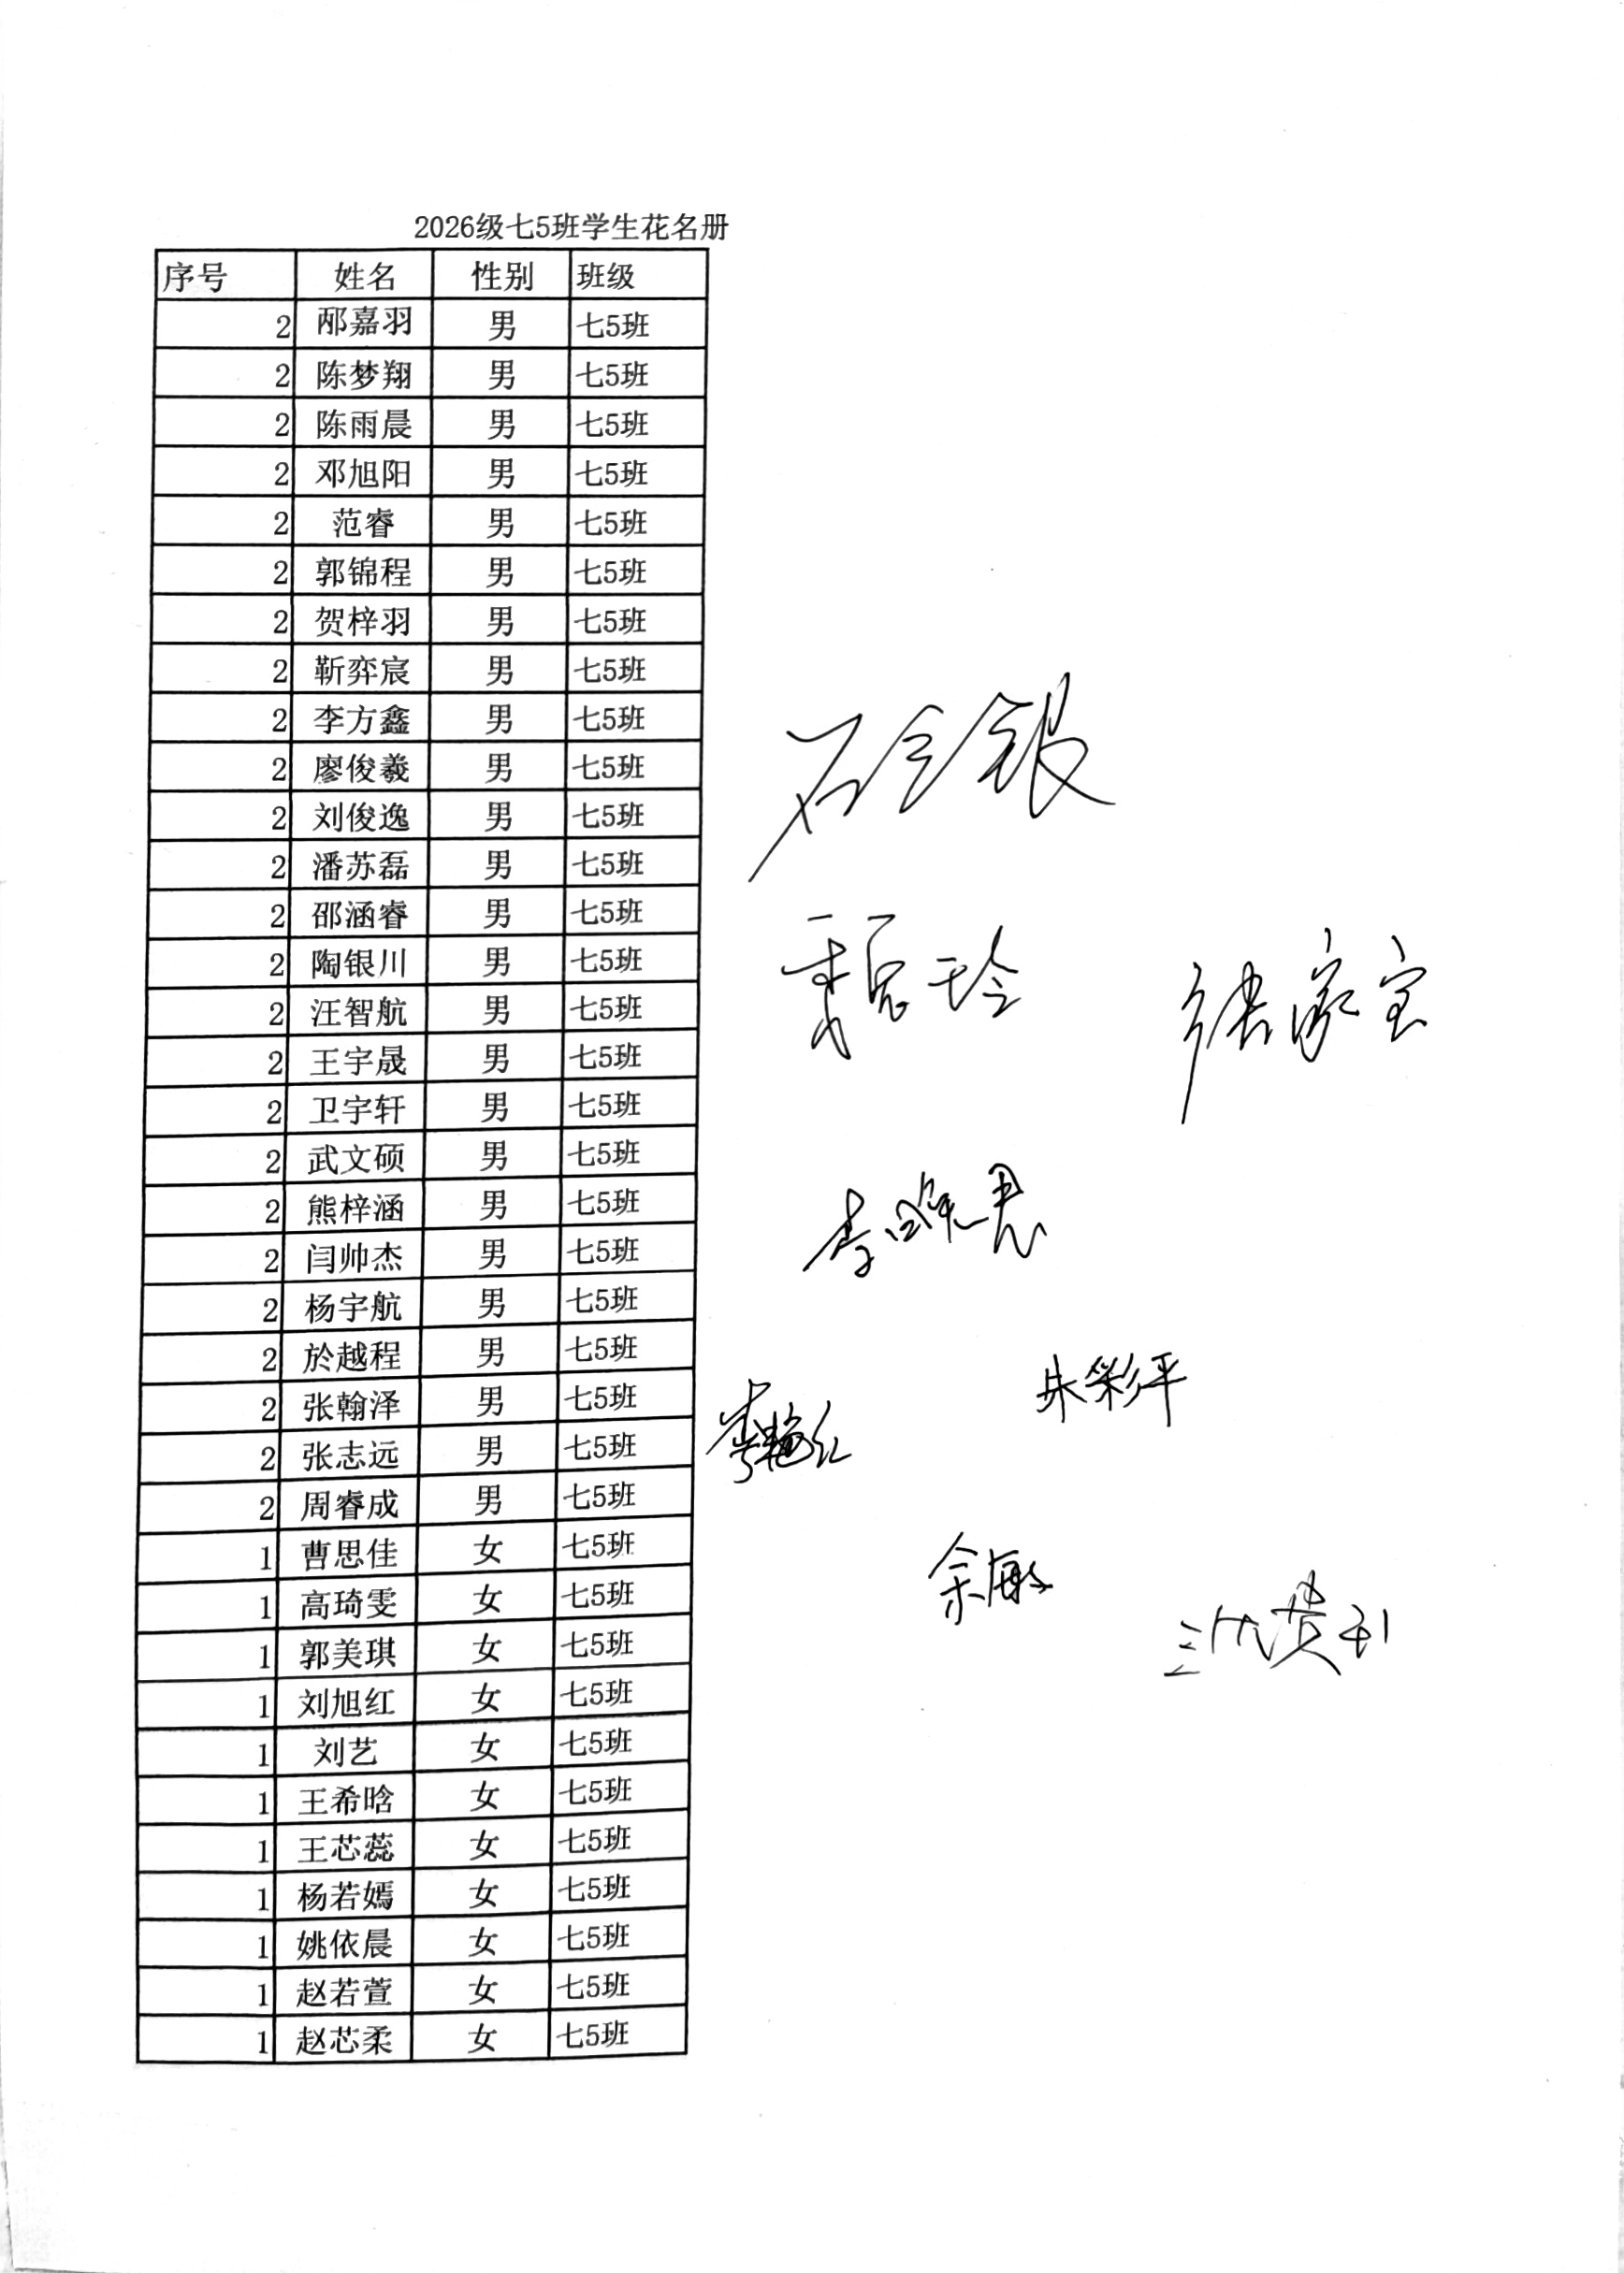 2026级七5班学生花名册
序号 姓名 性别 班级
2 邴嘉羽 男 七5班
2 陈梦翔 男 七5班
2 陈雨晨 男 七5班
2 邓旭阳 男 七5班
2 范睿 男 七5班
2 郭锦程 男 七5班
2 贺梓羽 男 七5班
2 靳弈宸 男 七5班
2 李方鑫 男 七5班
2 廖俊羲 男 七5班
2 刘俊逸 男 七5班
2 潘苏磊 男 七5班
2 邵涵睿 男 七5班
2 陶银川 男 七5班
2 汪智航 男 七5班
2 王宇晟 男 七5班
2 卫宇轩 男 七5班
2 武文硕 男 七5班
2 熊梓涵 男 七5班
2 闫帅杰 男 七5班
2 杨宇航 男 七5班
2 於越程 男 七5班
2 张翰泽 男 七5班
2 张志远 男 七5班
2 周睿成 男 七5班
1 曹思佳 女 七5班
1 高琦雯 女 七5班
1 郭美琪 女 七5班
1 刘旭红 女 七5班
1 刘艺 女 七5班
1 王希晗 女 七5班
1 王芯蕊 女 七5班
1 杨若嫣 女 七5班
1 姚依晨 女 七5班
1 赵若萱 女 七5班
1 赵芯柔 女 七5班
张家宝
朱彩平
余敏